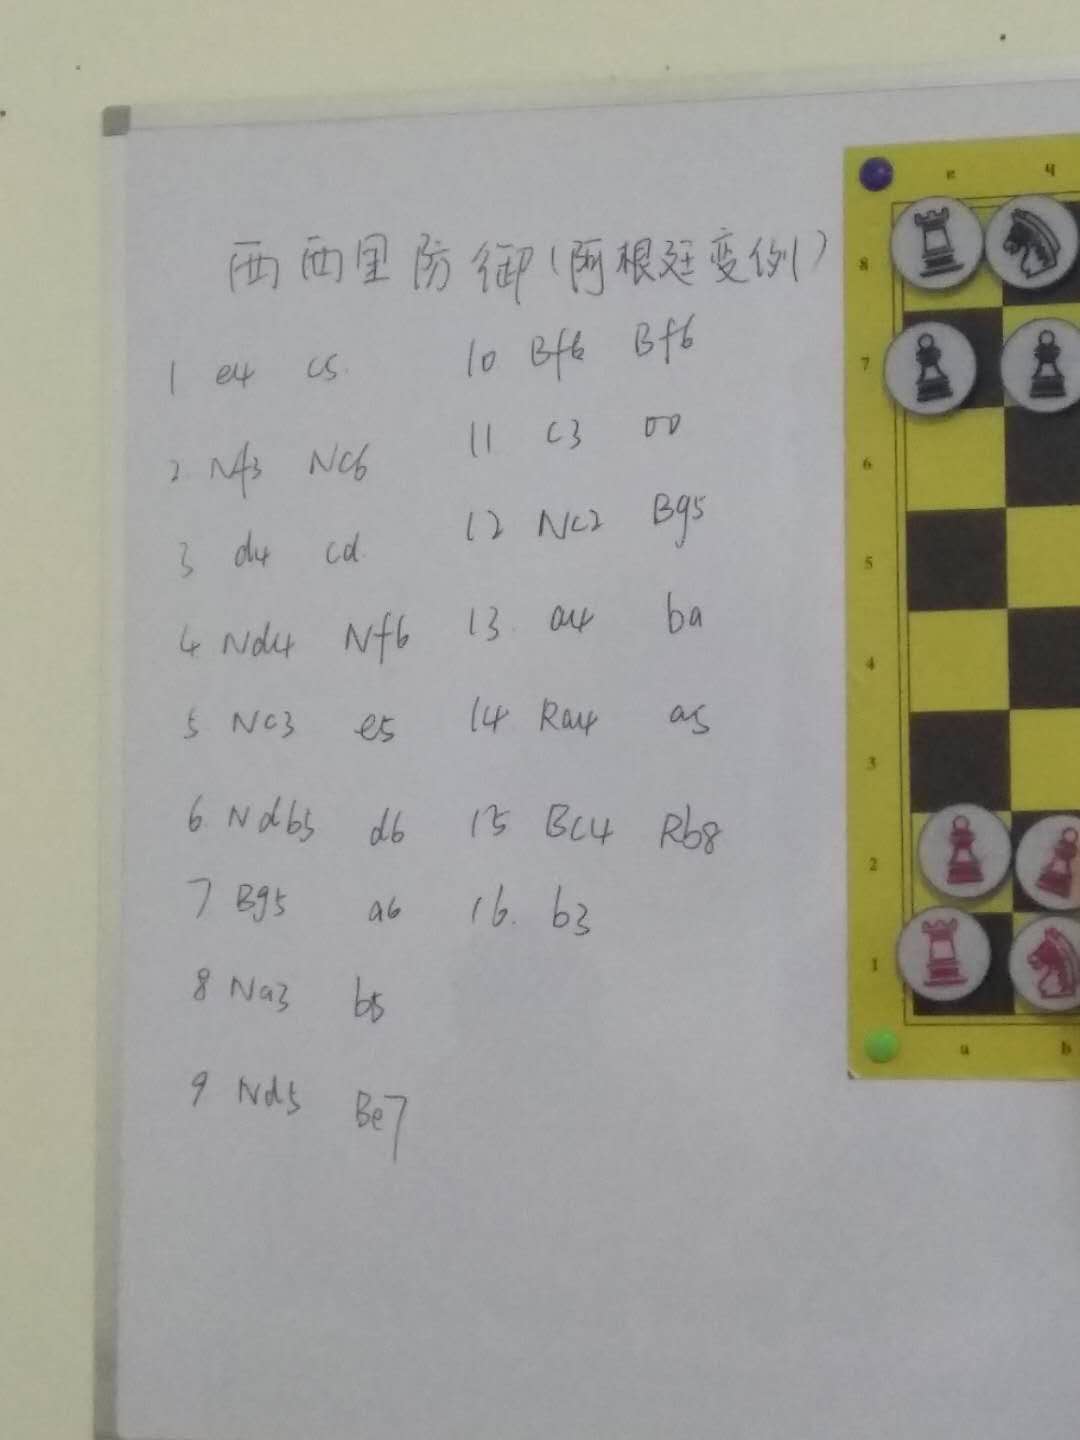 西西里防御(阿根廷变例)
1 e4 c5
2 Nf3 Nc6
3 d4 cd
4 Nd4 Nf6
5 Nc3 e5
6 Ndb5 d6
7 Bg5 a6
8 Na3 b5
9 Nd5 Be7
10 Bf6 Bf6
11 c3 00
12 Nc2 Bg5
13 a4 ba
14 Ra4 a5
15 Bc4 Rb8
16. b3
a b
8
7
6
5
4
3
2
1
a b